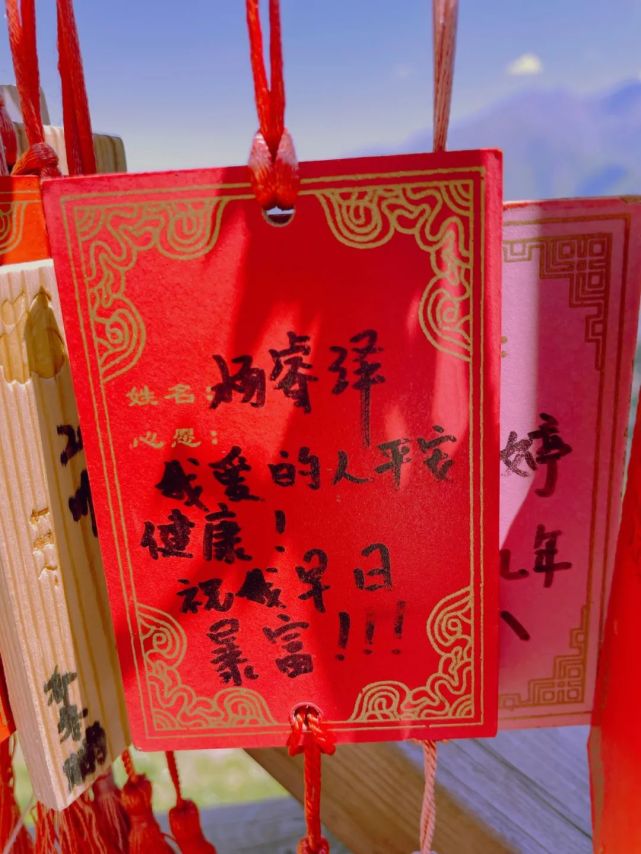 姓名：杨睿洋
心愿：
我爱的人平安
健康！
祝我早日
暴富！！！
婷
年